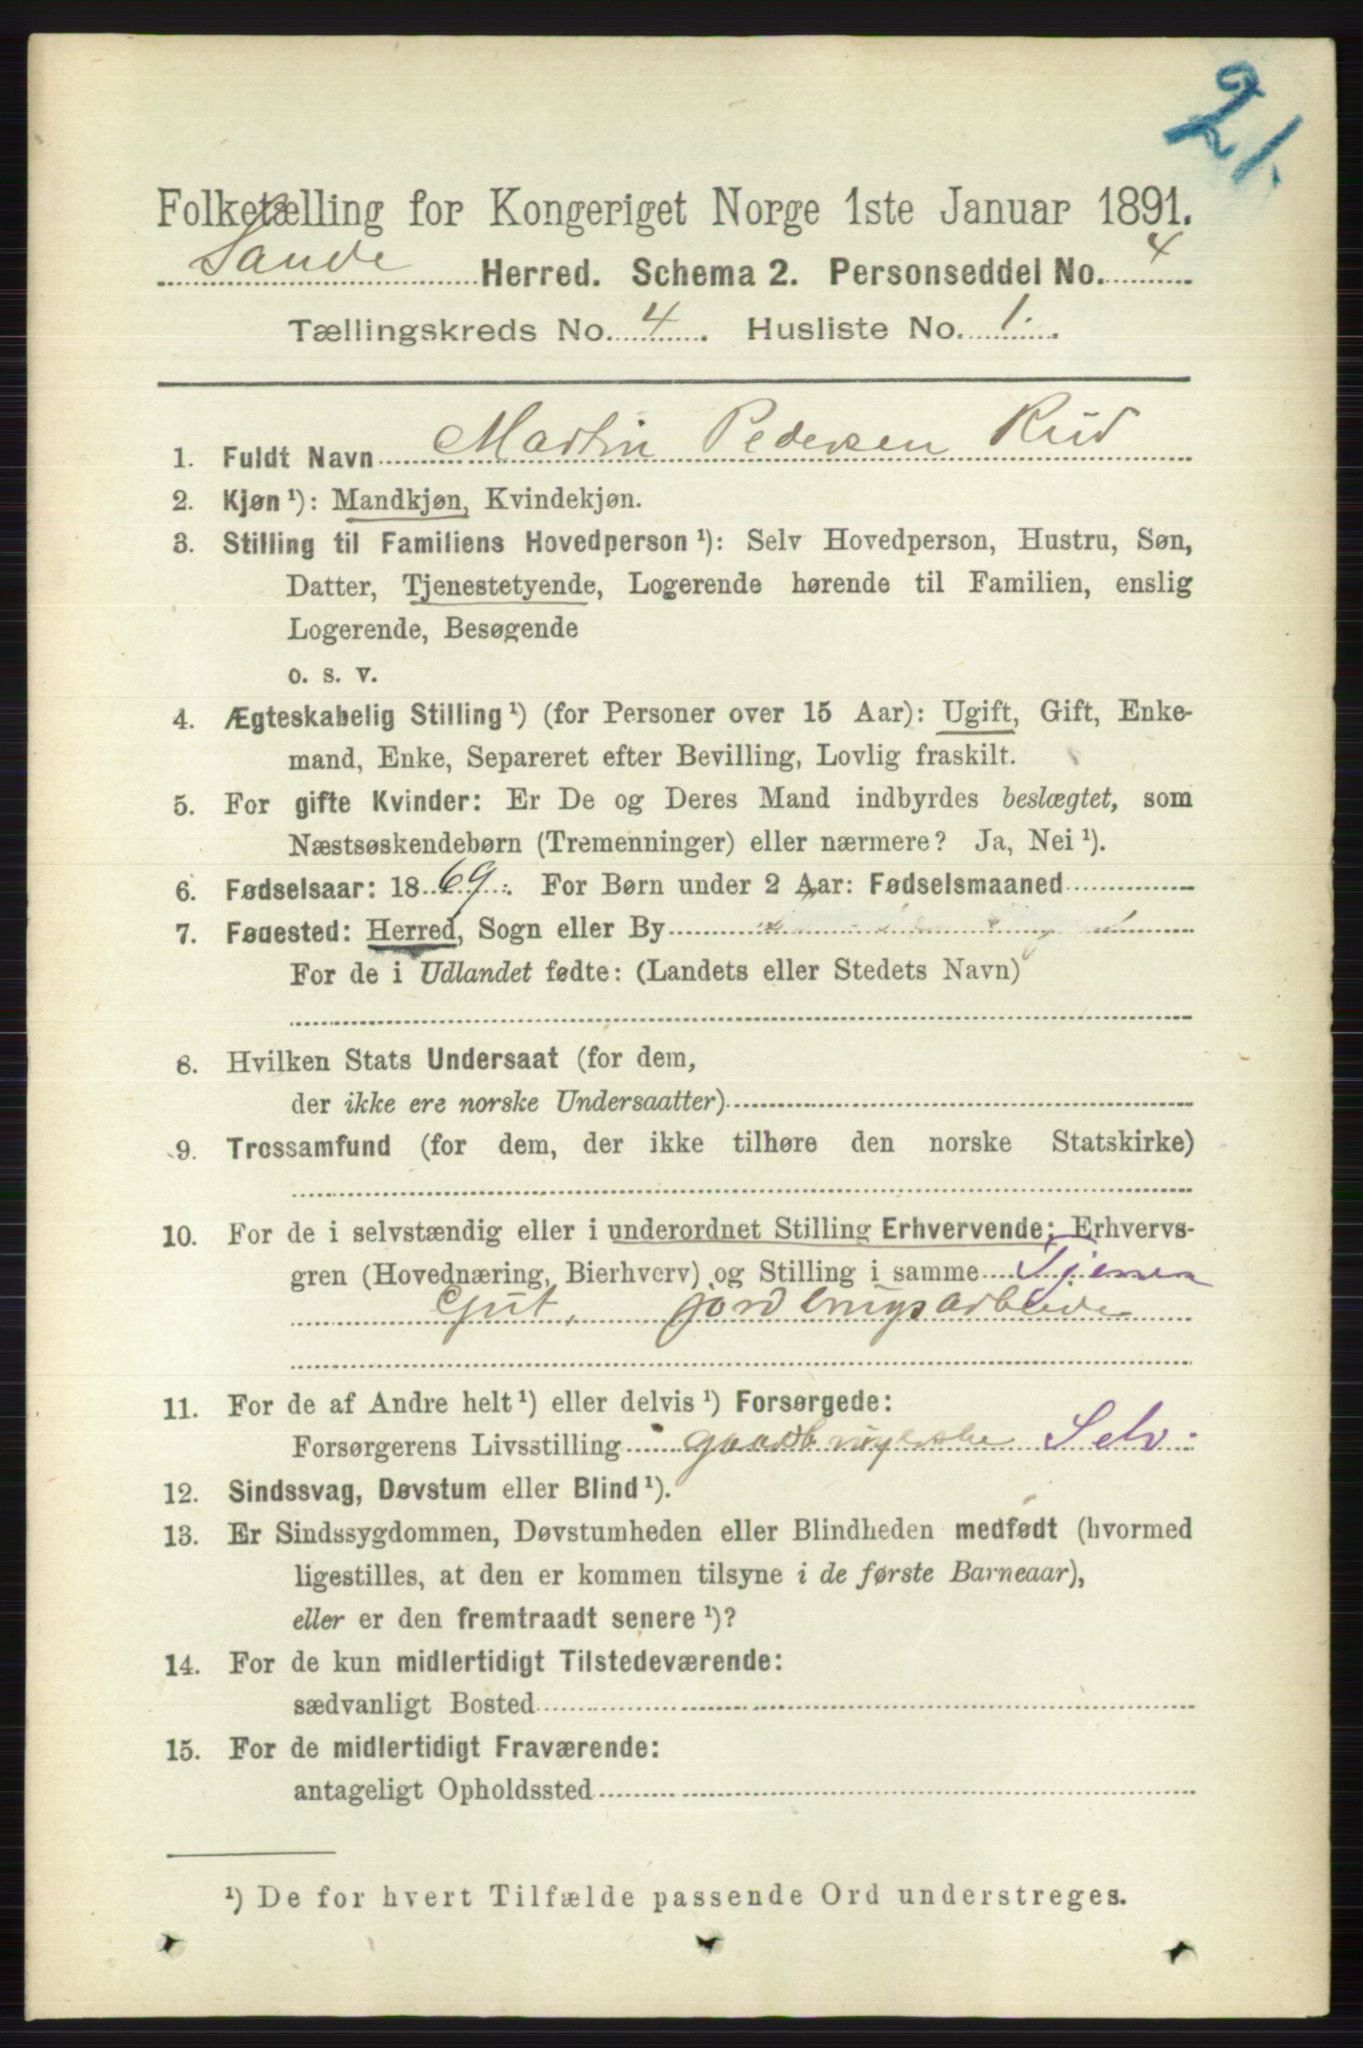 21.
Folketælling for Kongeriget Norge 1ste Januar 1891.
Sande Herred. Schema 2. Personseddel No. 4
Tællingskreds No. 4. Husliste No. 1.
1. Fuldt Navn Martin Pedersen Rud
2. Kjøn ¹): Mandkjøn, Kvindekjøn.
3. Stilling til Familiens Hovedperson ¹): Selv Hovedperson, Hustru, Søn,
Datter, Tjenestetyende, Logerende hørende til Familien, enslig
Logerende, Besøgende
o. s. v.
4. Ægteskabelig Stilling ¹) (for Personer over 15 Aar): Ugift, Gift, Enke-
mand, Enke, Separeret efter Bevilling, Lovlig fraskilt.
5. For gifte Kvinder: Er De og Deres Mand indbyrdes beslægtet, som
Næstsøskendebørn (Tremenninger) eller nærmere? Ja, Nei ¹).
6. Fødselsaar: 1869. For Børn under 2 Aar: Fødselsmaaned
7. Fødested: Herred, Sogn eller By
For de i Udlandet fødte: (Landets eller Stedets Navn)
8. Hvilken Stats Undersaat (for dem,
der ikke ere norske Undersaatter)
9. Trossamfund (for dem, der ikke tilhøre den norske Statskirke)
10. For de i selvstændig eller i underordnet Stilling Erhvervende: Erhvervs-
gren (Hovednæring, Bierhverv) og Stilling i samme Tjener
Gut, jordbrugsarbeide
11. For de af Andre helt ¹) eller delvis ¹) Forsørgede:
Forsørgerens Livsstilling Selv.
12. Sindssvag, Døvstum eller Blind ¹).
13. Er Sindssygdommen, Døvstumheden eller Blindheden medfødt (hvormed
ligestilles, at den er kommen tilsyne i de første Barneaar),
eller er den fremtraadt senere ¹)?
14. For de kun midlertidigt Tilstedeværende:
sædvanligt Bosted
15. For de midlertidigt Fraværende:
antageligt Opholdssted
¹) De for hvert Tilfælde passende Ord understreges.